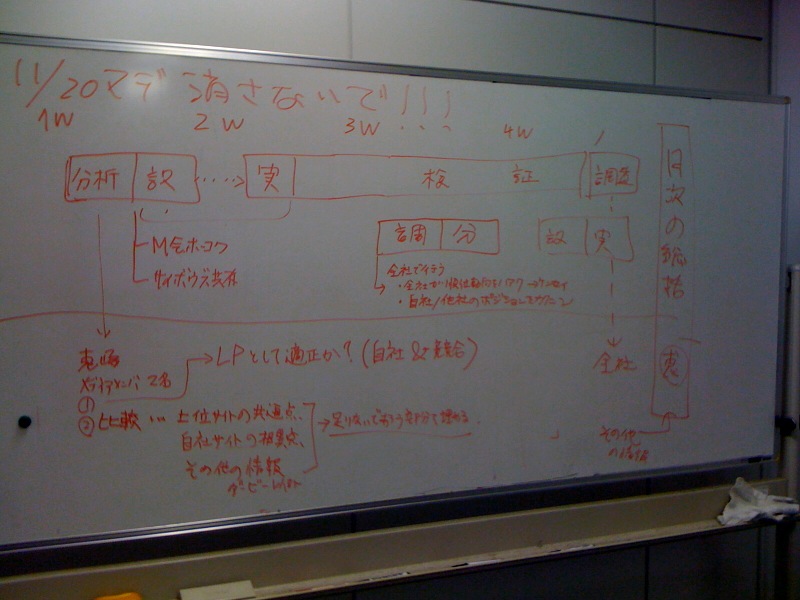 11/20マデ消さないで!!!
1W 2W 3W 4W
分析 設 ····> 実 検証 調査
M会ホーコク
サイボウズ共有
調 分 設 実
全社で行う
・自社/他社のポジション
日次の総括
LPとして適正か?(自社&競合)
全社
メディアメンバ 2名
①
②比較… 上位サイトの共通点、
自社サイトの相異点、
その他の情報
足りないであろう部分を埋める。
その他
の情報